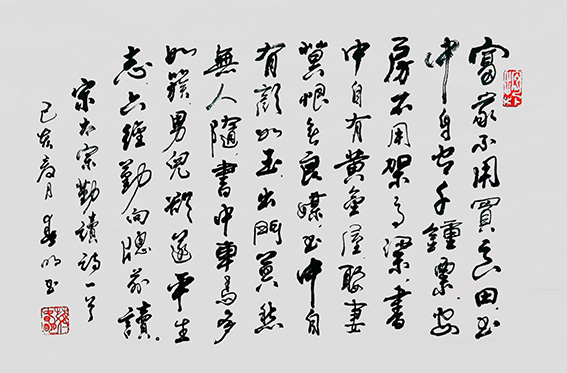 富家不用買良田書
中自有千鍾粟安
房不用架高梁書
中自有黃金屋娶妻
莫恨無良媒書中自
有顏如玉出門莫愁
無人隨書中車馬多
如簇男兒欲遂平生
志六經勤向牕前讀
宋太宗勤讀詩一首
己亥月春明書